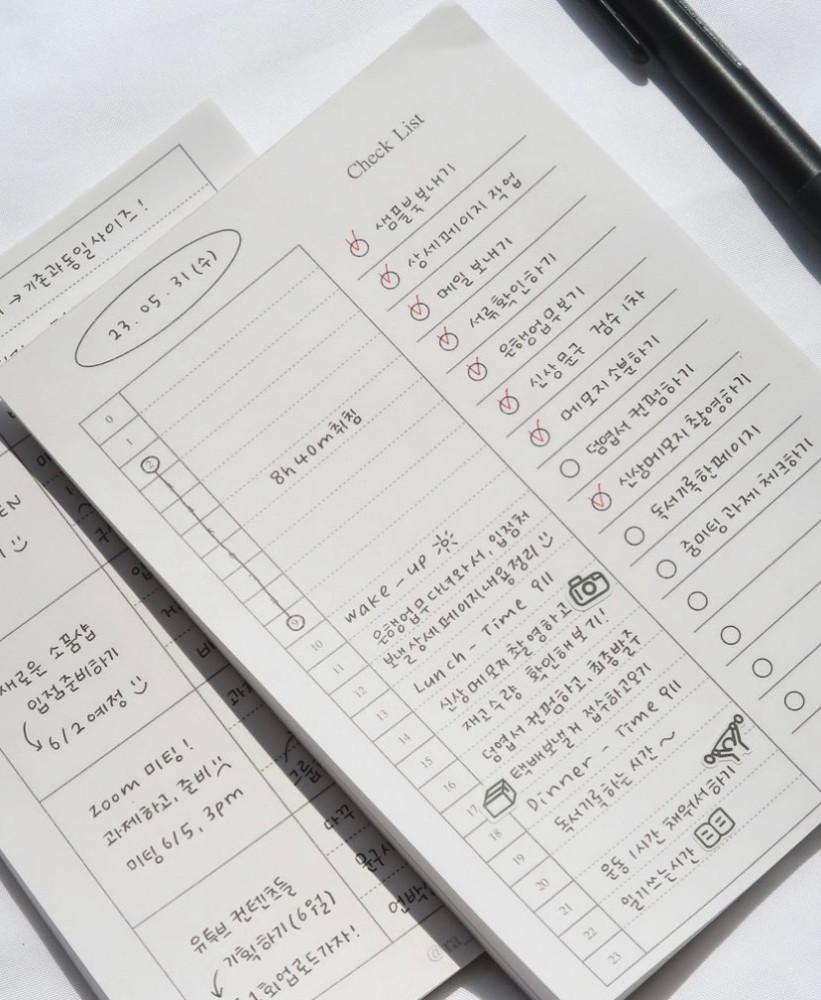 Check List
샘플북보내기
상세페이지 작업
메일 보내기
서류확인하기
은행업무보기
신상문구 검수 1차
메모지 소분하기
덩엽서 컨펌하기
신상메모지 촬영하기
독서기록한페이지
줌미팅 과제 체크하기
23.05.31(수)
0
1
2
8h 40m취침
9
10
wake-up
11
은행업무 다녀와서, 입점처
12
보낼 상세페이지내용정리
13
Lunch - Time 밥
14
신상메모지 촬영하고
15
재고수량 확인해보기!
16
덩엽서 컨펌하고, 최종발주
17
택배보낼거 접수하고오기
18
Dinner - Time 밥
19
독서기록하는 시간~
20
21
운동 1시간 채워서하기
22
일기쓰는시간
23
→ 기존과동일사이즈!
새로운 소품샵
입점준비하기
6/2예정
zoom 미팅!
과제하고, 준비
미팅 6/5, 3pm
유튜브 컨텐츠들
기획하기(6월)
1회업로드가자!